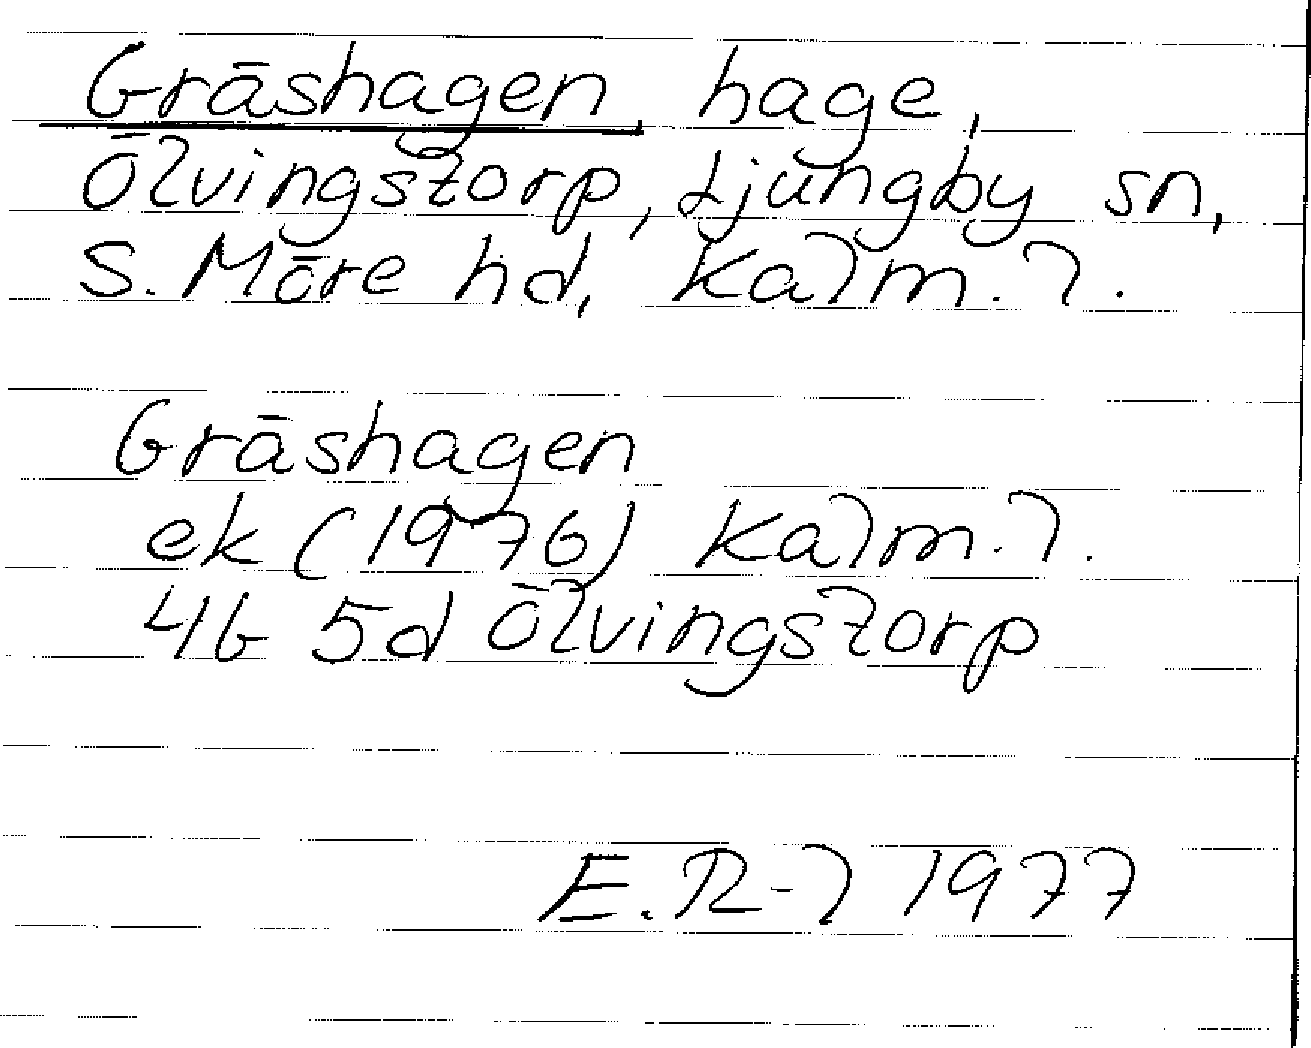 Gräshagen, hage,
Ölvingstorp, Ljungby sn,
S. Möre hd, Kalm. l.
Gräshagen
ek (1976) Kalm. l.
4G 5d Ölvingstorp
E. R-l 1977